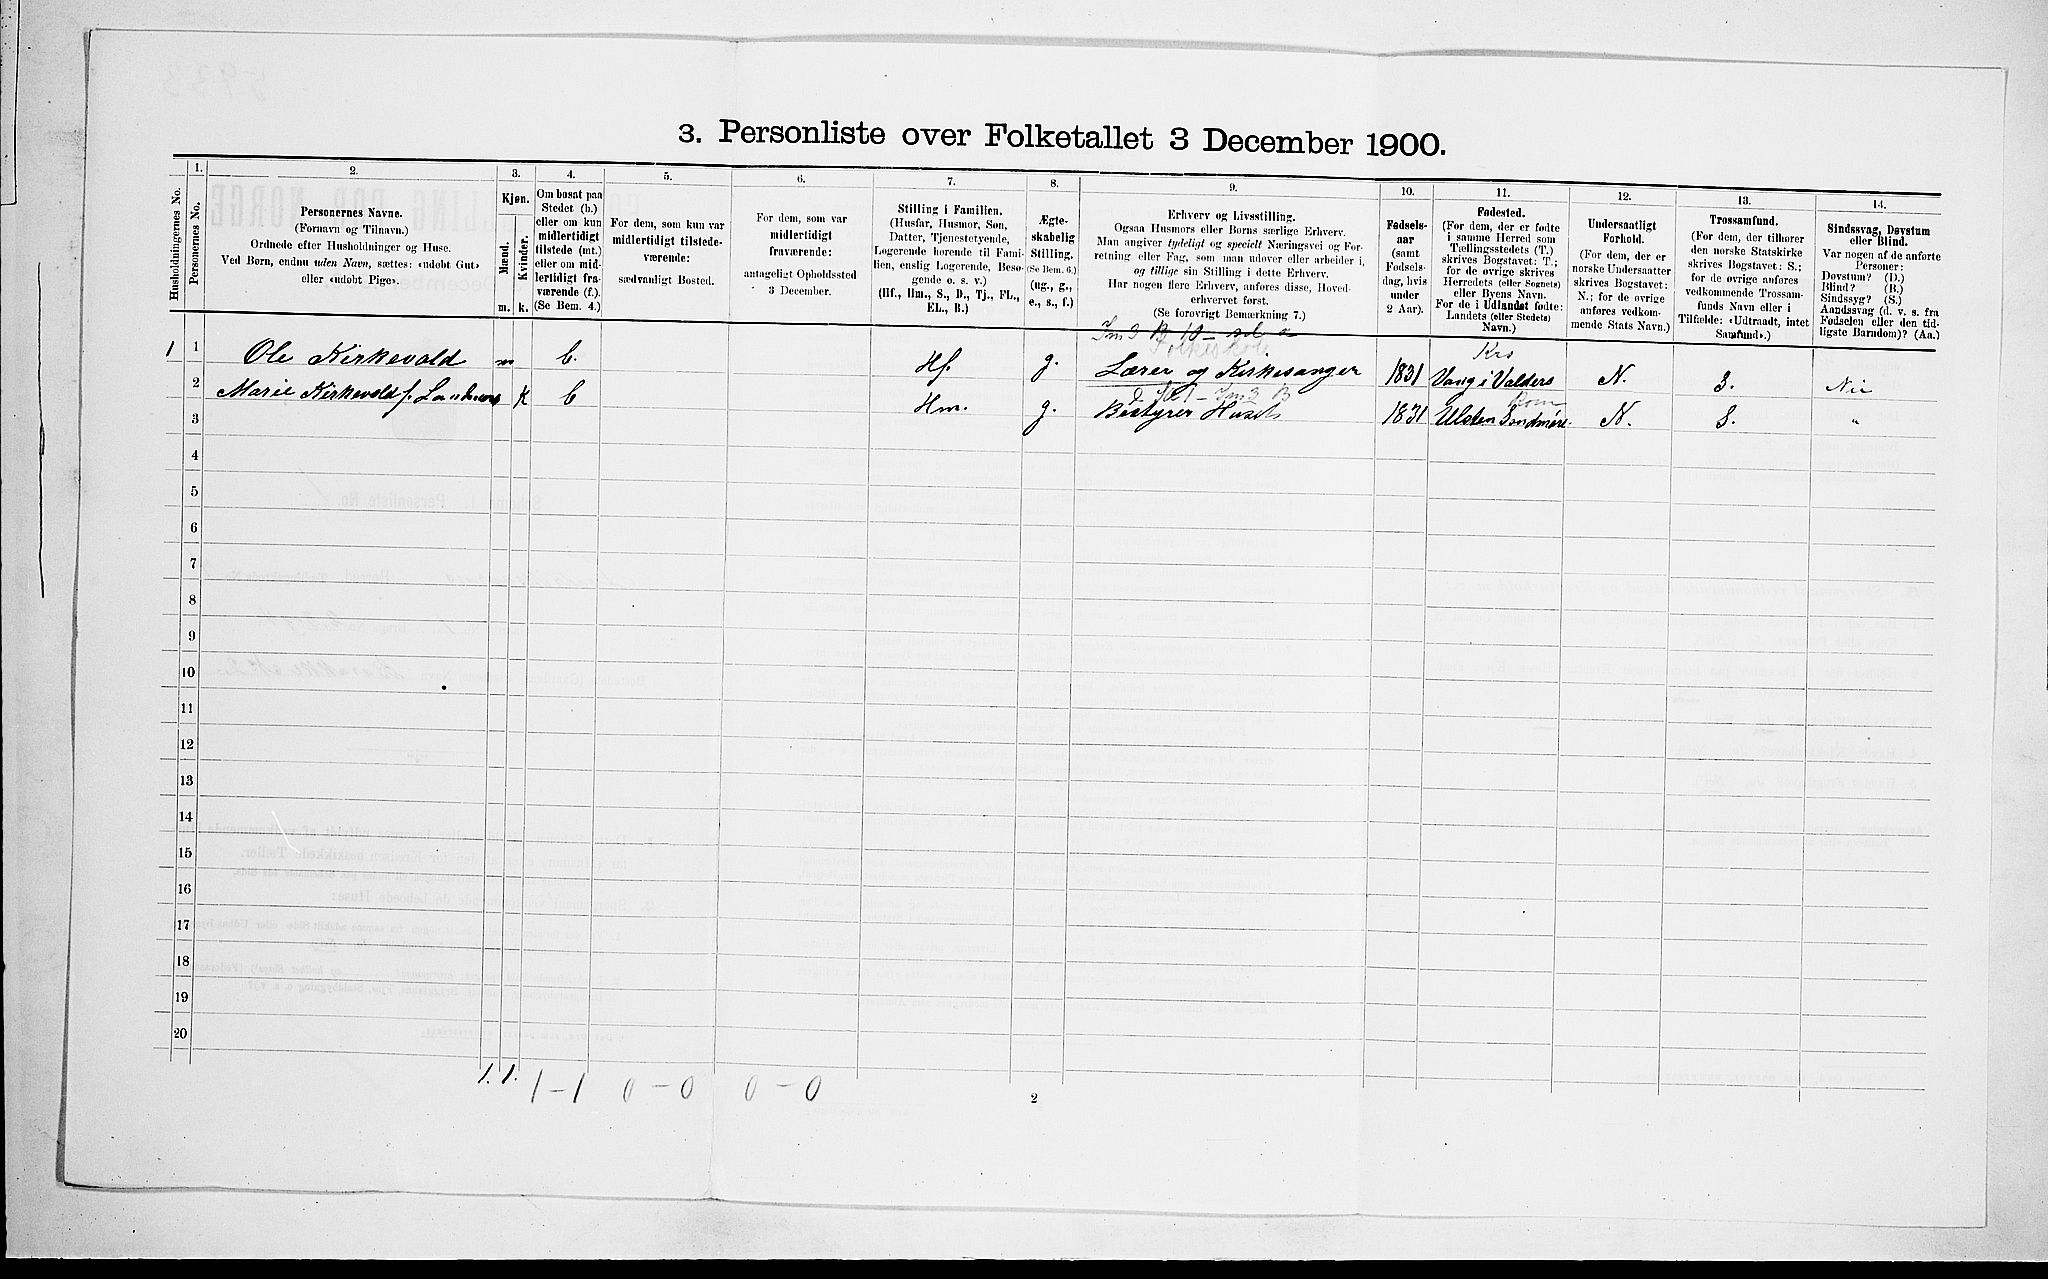 3. Personliste over Folketallet 3 December 1900.
Husholdningernes No.
1.
Personernes No.
2.
Personernes Navne.
(Fornavn og Tilnavn.)
Ordnede efter Husholdninger og Huse.
Ved Børn, endnu uden Navn, sættes: «udøbt Gut»
eller «udøbt Pige».
3.
Kjøn.
Mænd.
m.
Kvinder.
k.
4.
Om bosat paa
Stedet (b.)
eller om kun
midlertidigt
tilstede (mt.)
eller om mid-
lertidigt fra-
værende (f.).
(Se Bem. 4.)
5.
For dem, som kun var
midlertidigt tilstede-
værende:
sædvanligt Bosted.
6.
For dem, som var
midlertidigt
fraværende:
antageligt Opholdssted
3 December.
7.
Stilling i Familien.
(Husfar, Husmor, Søn,
Datter, Tjenestetyende,
Logerende hørende til Fami-
lien, enslig Logerende, Besø-
gende o. s. v.)
(Hf., Hm., S., D., Tj., FL.,
EL., B.)
8.
Ægte-
skabelig
Stilling.
(Se Bem. 6.)
(ug., g.,
e., s., f.)
9.
Erhverv og Livsstilling.
Ogsaa Husmors eller Børns særlige Erhverv.
Man angiver tydeligt og specielt Næringsvei og For-
retning eller Fag, som man udøver eller arbeider i,
og tillige sin Stilling i dette Erhverv.
Har nogen flere Erhverv, anføres disse, Hoved-
erhvervet først.
(Se forøvrigt Bemærkning 7.)
10.
Fødsels-
aar
(samt
Fødsels-
dag, hvis
under
2 Aar).
11.
Fødested.
(For dem, der er fødte
i samme Herred som
Tællingsstedets (T.)
skrives Bogstavet: T.;
for de øvrige skrives
Herredets (eller Sognets)
eller Byens Navn.
For de i Udlandet fødte:
Landets (eller Stedets)
Navn.)
12.
Undersaatligt
Forhold.
(For dem, der er
norske Undersaatter
skrives Bogstavet:
N.; for de øvrige
anføres vedkom-
mende Stats Navn.)
13.
Trossamfund.
(For dem, der tilhører
den norske Statskirke
skrives Bogstavet: S.;
for de øvrige anføres
vedkommende Trossam-
funds Navn eller i
Tilfælde: «Udtraadt, intet
Samfund».)
14.
Sindssvag, Døvstum
eller Blind.
Var nogen af de anførte
Personer:
Døvstum? (D.)
Blind? (B.)
Sindssyg? (S.)
Aandssvag (d. v. s. fra
Fødselen eller den tid-
ligste Barndom)? (Aa.)
Folkeskole
1 1 Ole Kirkevold m b. Hf. g. Lærer og Kirkesanger 1831 Vang i Valders N. S. Nei
2 Marie Kirkevold f. k b Hm. g. Bestyrer Huset 1831 Ulsten Søndmøre. N. S. "
3
4
5
6
7
8
9
10
11
12
13
14
15
16
17
18
19
20
1. 1. 1 - 1 0 - 0 0 - 0
2